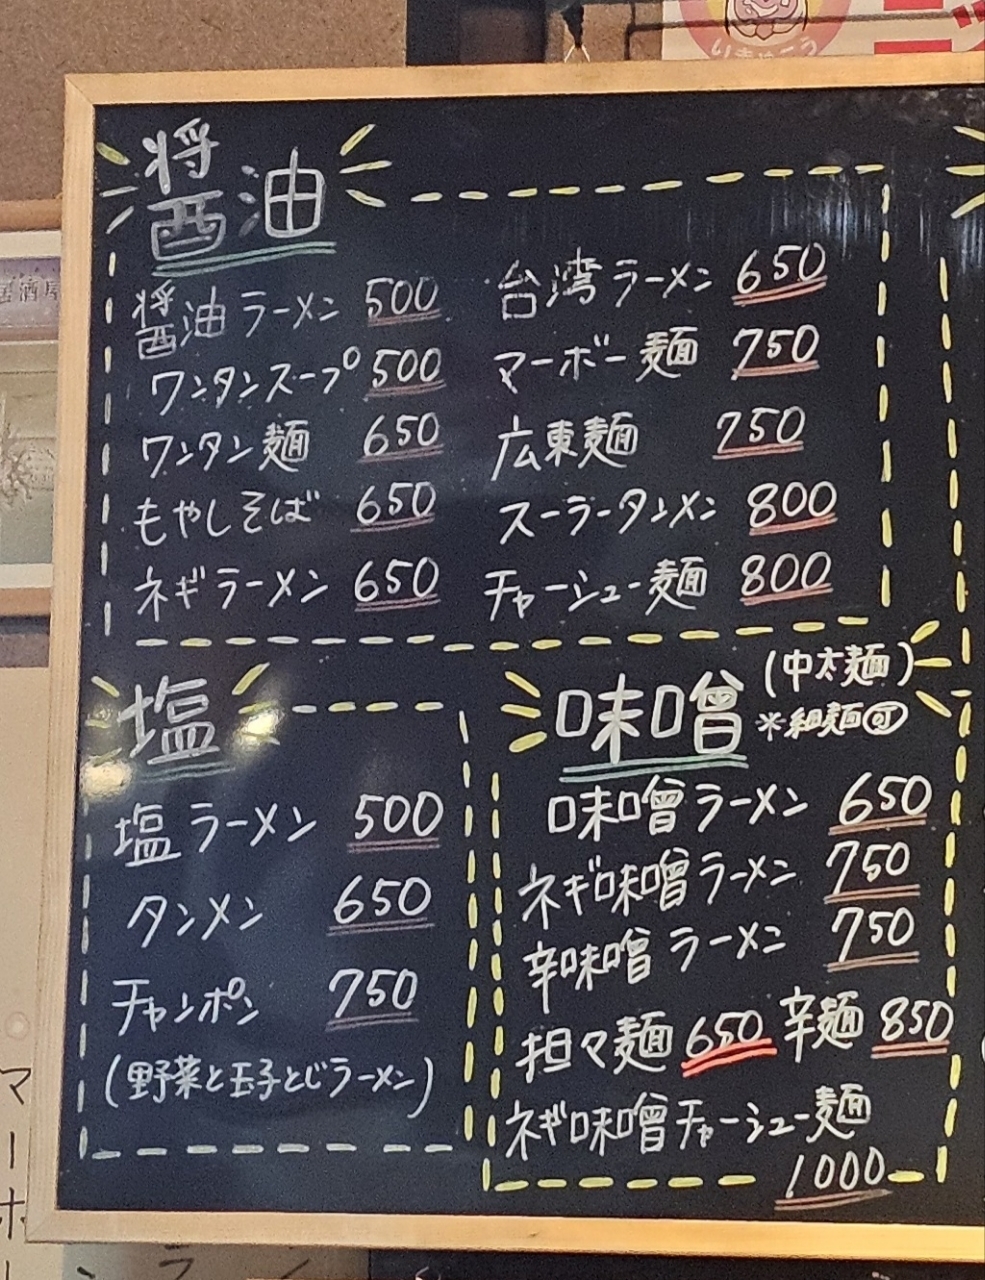 醤油
醤油ラーメン 500
ワンタンスープ 500
ワンタン麺 650
もやしそば 650
ネギラーメン 650
台湾ラーメン 650
マーボー麺 750
広東麺 750
スーラータンメン 800
チャーシュー麺 800
塩
塩ラーメン 500
タンメン 650
チャンポン 750
(野菜と玉子とじラーメン)
味噌 (中太麺)
※細麺可
味噌ラーメン 650
ネギ味噌ラーメン 750
辛味噌ラーメン 750
担々麺 650 辛麺 850
ネギ味噌チャーシュー麺
1000
居酒屋